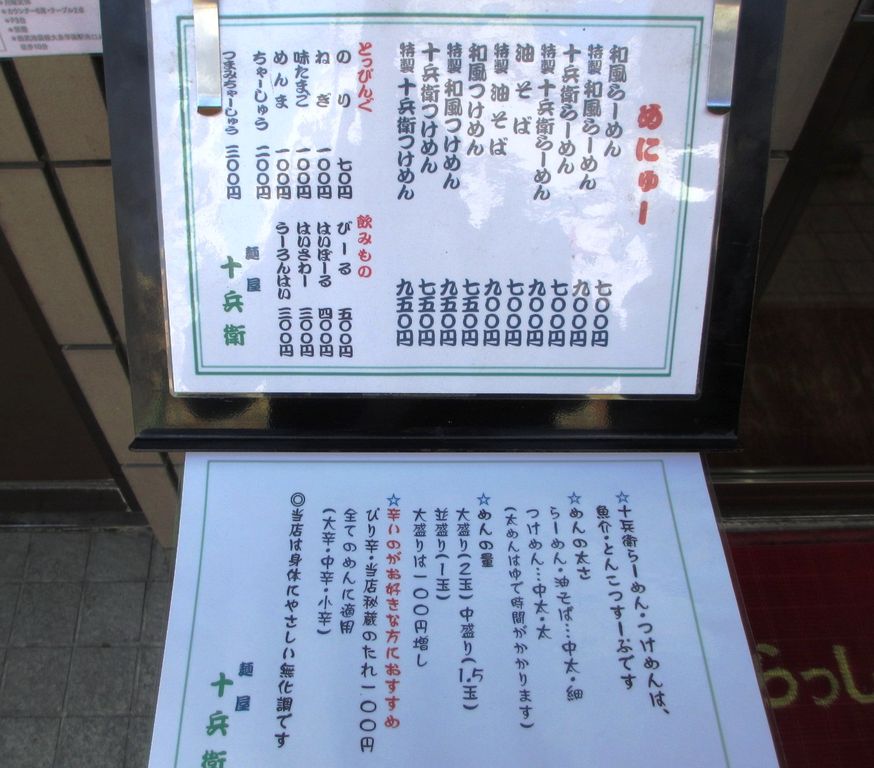 めにゅー
和風らーめん 七〇〇円
特製 和風らーめん 九〇〇円
十兵衛らーめん 七〇〇円
特製 十兵衛らーめん 九〇〇円
油そば 七〇〇円
特製 油そば 九〇〇円
和風つけめん 七五〇円
特製 和風つけめん 九五〇円
十兵衛つけめん 七五〇円
特製 十兵衛つけめん 九五〇円
とっぴんぐ
のり 七〇円
ねぎ 一〇〇円
味たまご 一〇〇円
めんま 一〇〇円
ちゃーしゅう 二〇〇円
つまみちゃーしゅう 三〇〇円
飲みもの
びーる 五〇〇円
はいぼーる 四〇〇円
はいさわー 三〇〇円
うーろんはい 三〇〇円
麺屋
十兵衛
☆十兵衛らーめん・つけめんは、
魚介・とんこつすーぷです
☆めんの太さ
らーめん・油そば…中太・細
つけめん…中太・太
(太めんはゆで時間がかかります)
☆めんの量
大盛り(2玉) 中盛り(1.5玉)
並盛り(1玉)
大盛りは一〇〇円増し
☆辛いのがお好きな方におすすめ
ぴり辛・当店秘蔵のたれ一〇〇円
全てのめんに適用
(大辛・中辛・小辛)
◎当店は身体にやさしい無化調です
麺屋
十兵衛
らっし
カウンター6席・テーブル2卓
P3台